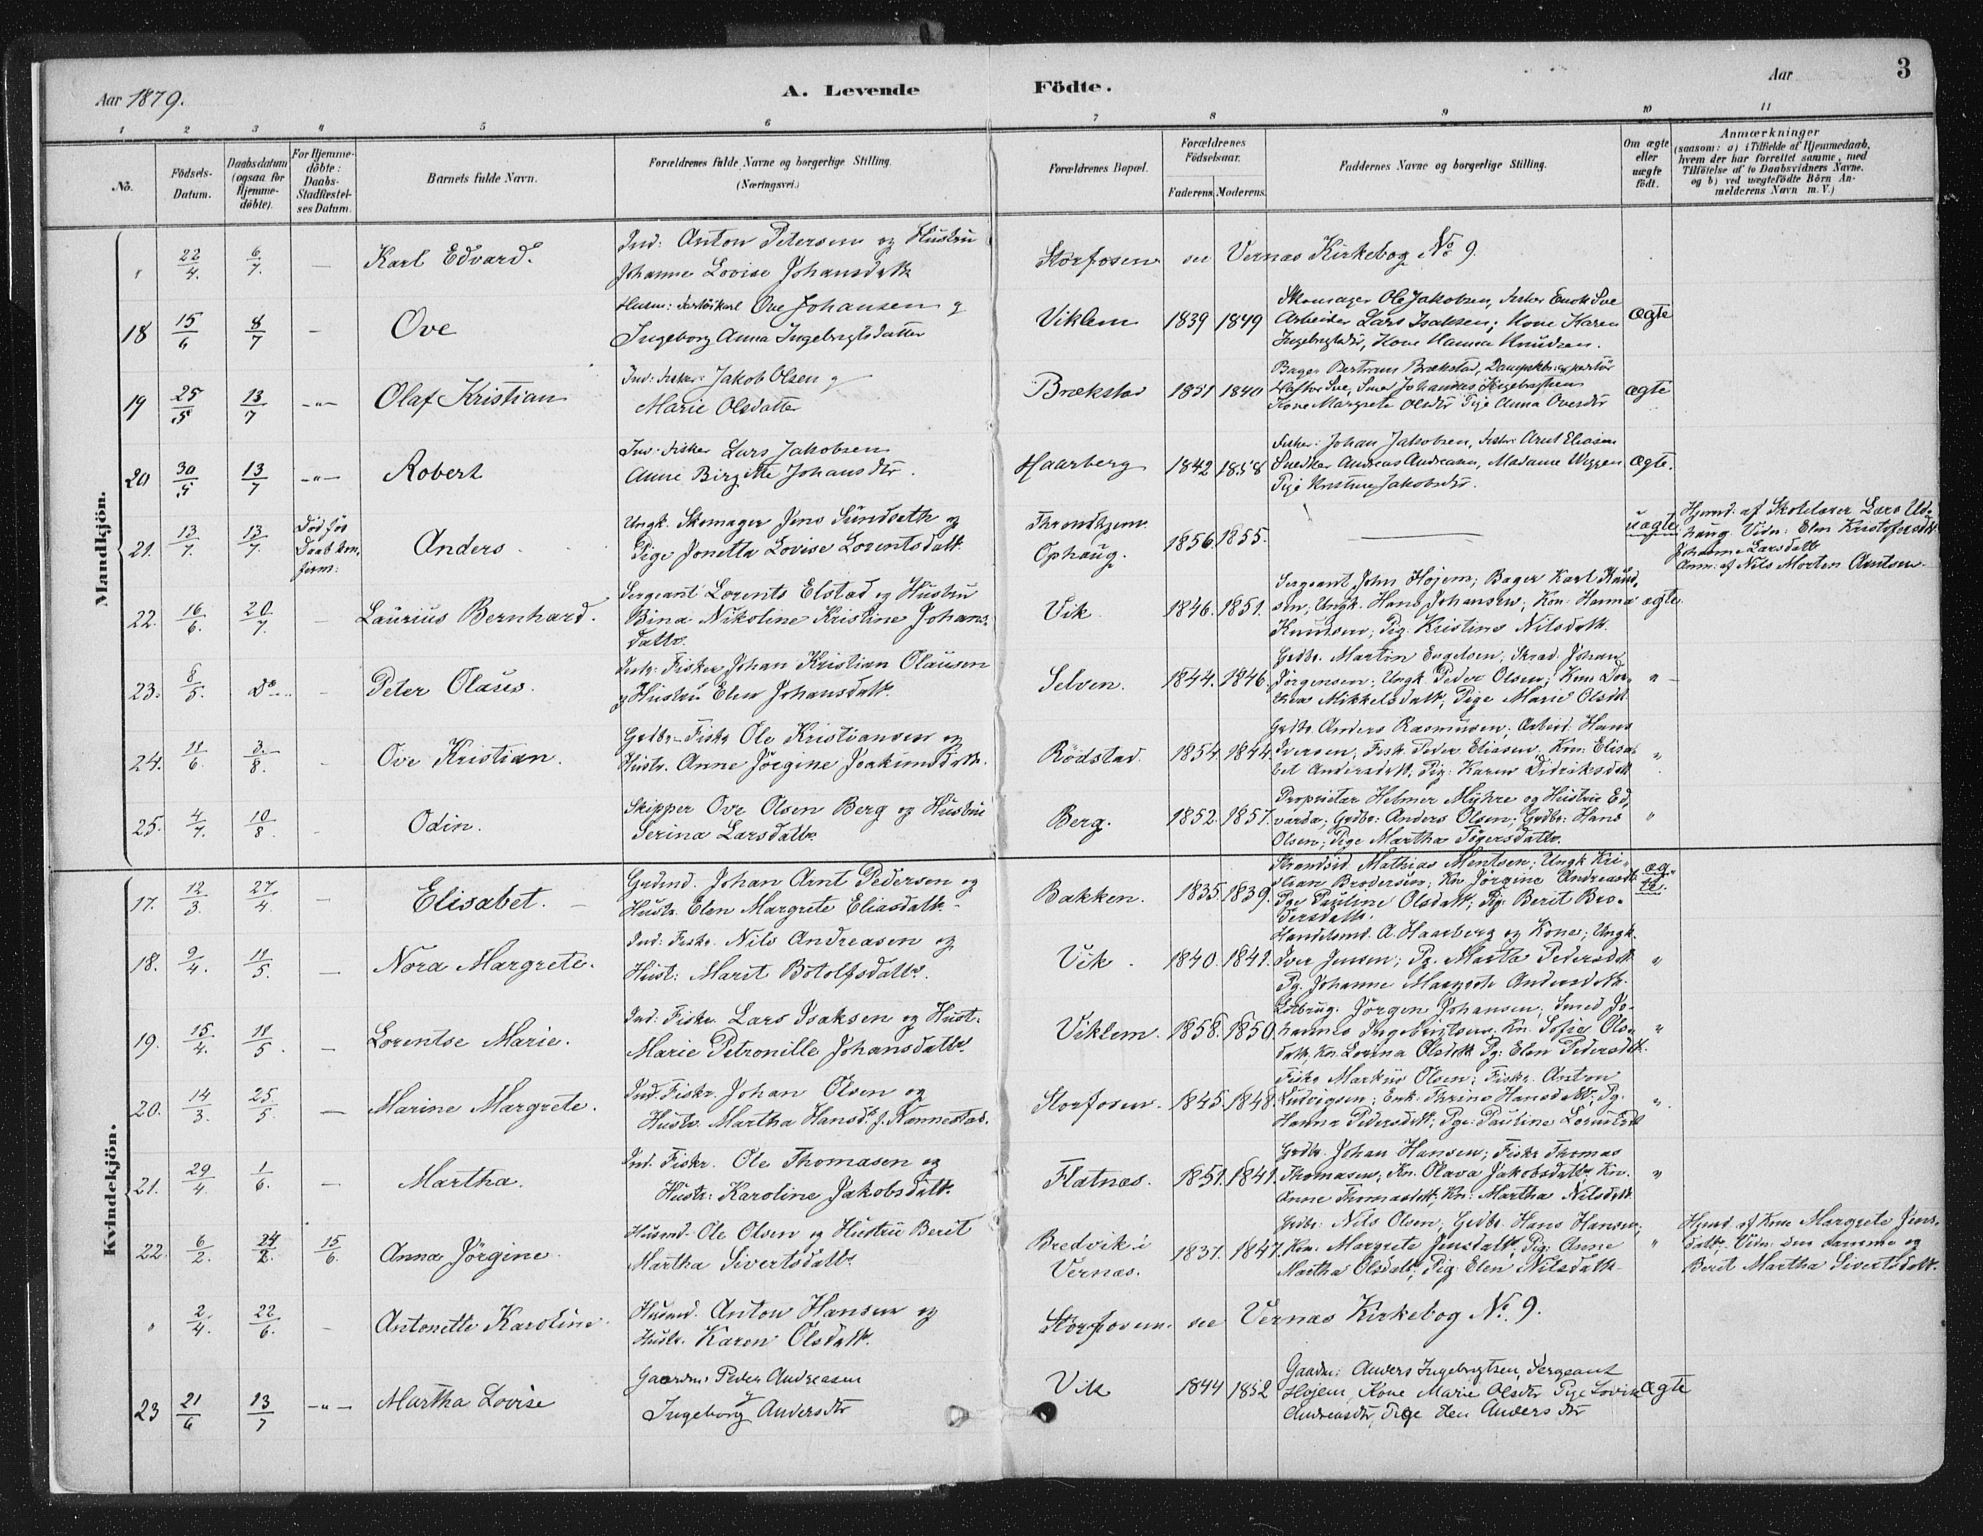 Aar 1879.
A. Levende Födte.
Aar
3
1 2 3 4 5 6 7 8 9 10 11
No.
Födsels-Datum.
Daabsdatum (ogsaa for Hjemmedöbte).
For Hjemmedöbte: Daabs-Stadfæstelses Datum.
Barnets fulde Navn.
Forældrenes fulde Navne og borgerlige Stilling. (Næringsvei.)
Forældrenes Bopæl.
Forældrenes Födselsaar.
Faderens. Moderens.
Faddernes Navne og borgerlige Stilling.
Om ægte eller uægte födt.
Anmærkninger
(saasom: a) i Tilfælde af Hjemmedaab, hvem der har forrettet samme, med Tilföielse af to Daabsvidners Navne, og b) ved uægtefödte Börn Anmelderens Navn m. V.)
Mandkjön.
" 22/4 6/7 — Karl Edvard. Ind: Anton Petersen og Hustru
Johanne Lovise Johansdatt. Storfosen see Vernas Kirkebog No 9.
18 15/6 8/7 — Ove Ove Johansen og
Ingeborg Anna Ingebrigtsdatter Viklem 1839 1849
Skomager Ole Jakobsen, Fisker Enok Sve
Arbeider Lars Isaksen; Kone Karen
Ingebrigtsdr, Kone Hanna Knudsen. Ægte
19 25/5 13/7 -"- Olaf Kristian Ind: Fisker Jakob Olsen og
Marie Olsdatter Brækstad 1851 1840
Bager Bertram Brækstad,
Sve, Smed Johannes Ingebrigtsen
Kone Margrete Olsdtr Pige Anna Ovesdtr ægte
20 30/5 13/7 -"- Robert Ind: Fisker Lars Jakobsen
Anne Birgitte Johansdtr. Haarberg 1842 1858
Fisker: Johan Jakobsen, Fisker Arnt Eliasen
Snedker Andreas Andreasen, Madame Wiggen
Pige Kristine Jakobsdtr. ægte.
21. 13/7. 13/7 Död för Daab kon firm: Anders. Ungk. Skomager Jens Sundseth og
Pige Jonetta Lovise Lorentsdatt. Throndhjem. Ophaug. 1856. 1855. — uægte
Hjemd. af Skolelærer Lars Udhaug Vidn: Elen Kristofersdt
Johanna Larsdatt
Anm: af Nils Morten Arntsen.
22. 16/6. 20/7. — Laurius Bernhard. Sergeant Lorents Elstad og Hustru
Bina Nikoline Kristine Johans-
datter. Vik. 1846. 1851.
Sergeant John Hojem; Bager Karl Knud-
sen; Ungk. Hans Johansen; Kon. Hanna
Knudsen; Pig. Kristine Nilsdatt. ægte.
23. 8/5. Do — Peter Olaus. Indr. Fisker Johan Kristian Olausen
og Hustru Elen Johansdatt. Selven. 1844. 1846.
Grdbr. Martin Engelsen, Johan
Jörgensen; Ungk. Peder Olsen; Kone Dor-
thea Mikkelsdatt; Pige Marie Olsdt. "
24. 11/6 3/8. — Ove Kristian. Grdbr- Fiskr Ole Kristiansen og
Hustr. Anne Jörgine Joakimsdatt. Rödstad. 1854. 1844.
Grdbr Anders Rasmusen; Arbeid. Hans
Iversen; Fisk. Peder Eliasen, Kon: Elisa-
bet Andersdatt, Pig: Karen Didriksdatt "
25. 4/7. 10/8. — Odin. Skipper Ove Olsen Berg og Hustru
Serina Larsdatter. Berg. 1852. 1857.
Proprietær Helmer Myhre og Hustru Ed-
varda; Grdbr: Anders Olsen; Grdbr: Hans
Olsen; Pige Martha Tögersdatt. "
Kvindekjön.
17. 12/3. 27/4. — Elisabet. — Grdmd. Johan Arnt Pedersen og
Hustr. Elen Margrete Eliasdatt. Bakken. 1835. 1839.
Strandsid. Mathias Mentsen; Ungk. Kri-
stian Brodersen; Kn. Jörgine Andreasdt
Pge Pauline Olsdatt; Pig. Berit Bro-
dersdatt. ægte.
18. 9/4. 11/5. — Nora Margrete. Ind: Fiskr. Nils Andreasen og
Hust: Marit Botolfsdatter. Vik. 1840. 1841.
Handelsmd. A. Haarberg og Kone; Ungk.
Iver Jensen; Pg. Marta Pedersdt
Pg. Johanne Margrete Andersdatt. "
19. 15/4. 11/5. — Lorentse Marie. Ind: Fiskr. Lars Isaksen og Hust.
Marie Petronille Johansdatter. Viklem. 1858. 1850.
Jörgen Johansen, Smed Jo-
hannes Ingebrigtsen; Kn. Sofie Ols-
datt, Kn. Lovina Olsdatt. Pg: Elen Pedersdt. "
20. 14/3. 25/5. — Marine Margrete. Ind. Fiskr. Johan Olsen og
Hustr. Martha Hansd. f. Nannestad. Storfosen. 1845. 1848.
Fiskr Markus Olsen; Fiskr. Anton
Ludvigsen; Enk. Thrine Hansdatt; Pg.
Hanna Pedersdatt; Pge: Pauline "
21. 29/4. 1/6. — Martha. Ind. Fiskr. Ole Thomasen og
Hustr: Karoline Jakobsdatt. Flatnæs. 1851. 1841.
Grdbr. Johan Hansen; Fiskr Thomas
Thomasen; Kn. Olava Jakobsdatt; Kn.
Anne Thomasdatt; Kn: Martha Nilsdatt. "
22. 6/2. 24/2. 15/6. Anna Jörgine. Husmd. Ole Olsen og Hustru Berit
Martha Sivertsdatt. Bredvik i Vernæs. 1837. 1847.
Grdbr: Nils Olsen; Grdbr. Hans Hansen;
Kon. Margrete Jensdatt; Pig. Anne
Martha Olsdatt; Pig. Elen Nilsdatt. "
Hjemd. af Kone Margrete Jens-
datt. Vidn: den samme og
Berit Martha Sivertsdatt.
" 2/4. 22/6. — Antonette Karoline. Husmd. Anton Hansen og
Hustr. Karen Olsdatt. Storfosen. see Vernas Kirkebog No. 9.
23 21/6 13/7 -"- Martha Lovise Gaardm: Peder Andreasen
og
Ingeborg Andersdtr Vik 1844 1852
Gaardm: Anders Ingebrigtsen, Sergeant
Hojem, Kone Marie Olsdtr Pige Lovise
Andreasdtr, Pige Andersdtr ægte